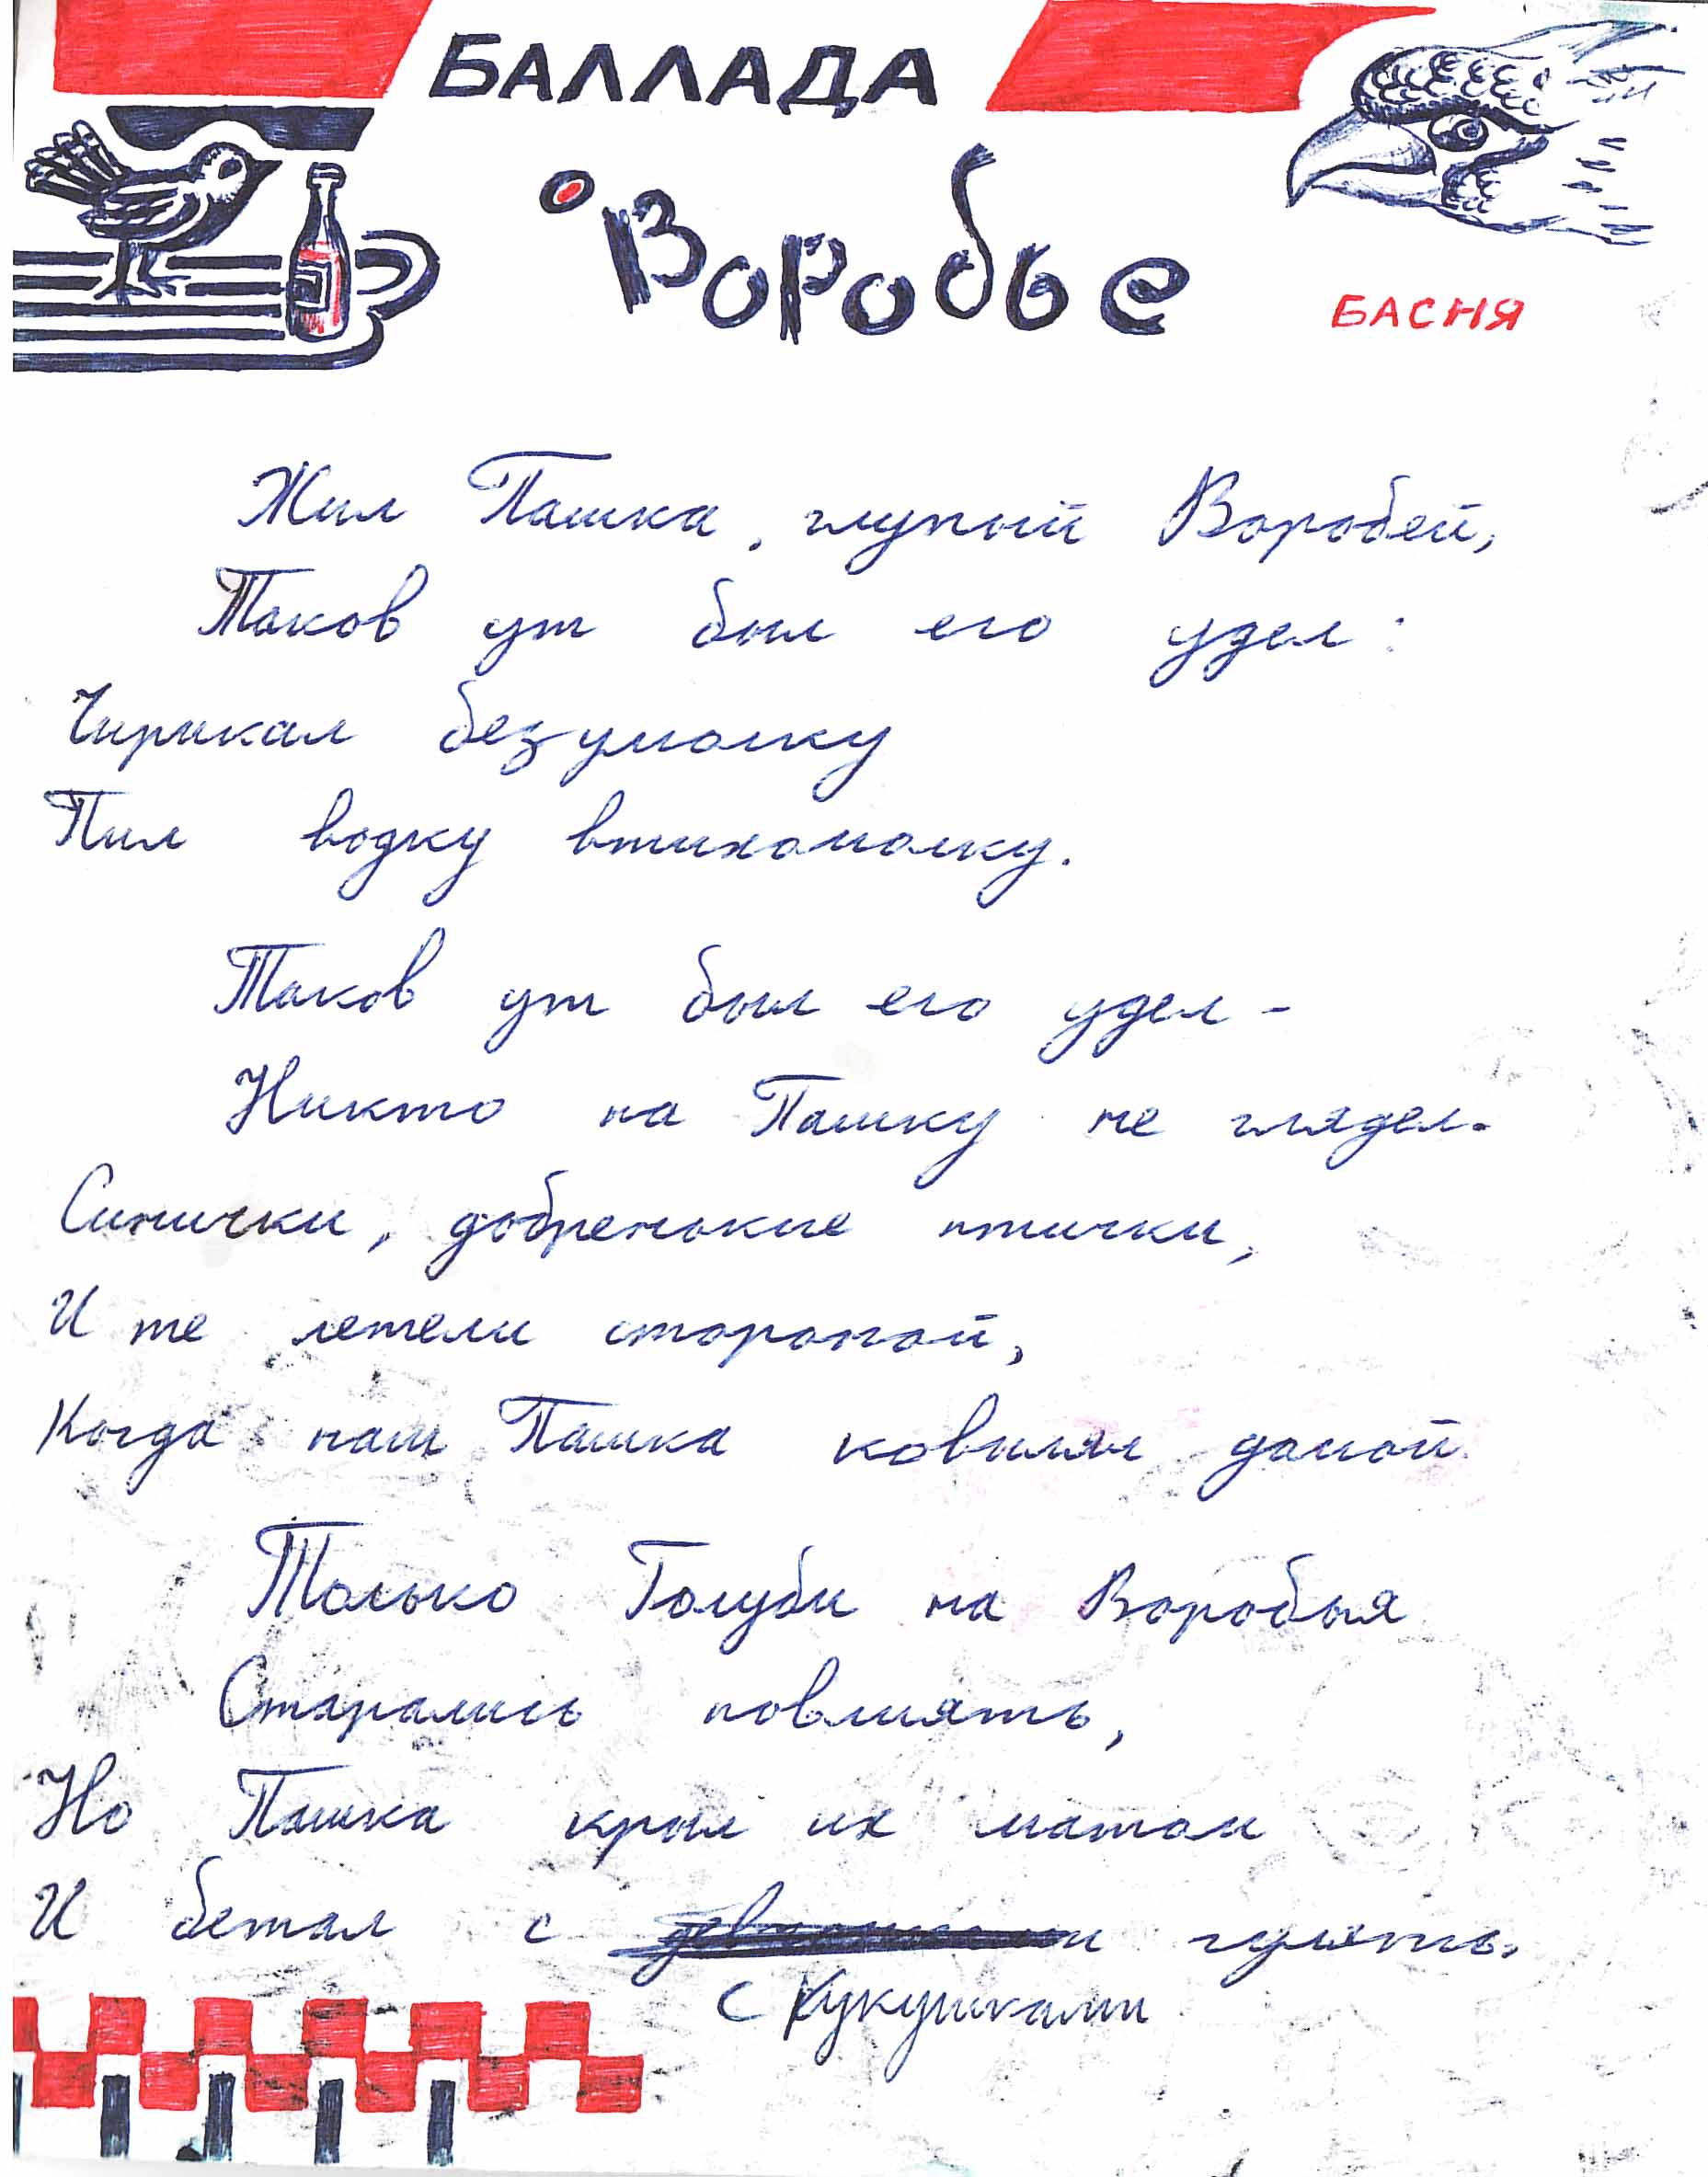 БАЛЛАДА
о Воробье
БАСНЯ
Жил Пашка, глупый Воробей,
Таков уж был его удел:
Чирикал безумолку
Пил водку втихомолку.
Таков уж был его удел -
Никто на Пашку не глядел.
Синички, добренькие птички,
И те летели стороной,
Когда наш Пашка ковылял домой
Только Голуби на Воробья
Старались повлиять,
Но Пашка крыл их матом
И бегал с гулять.
с Кукушками